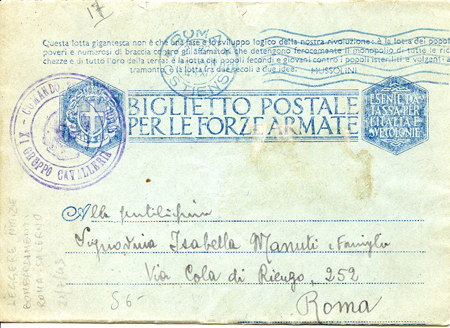 17
ROMA
OSTIENSE
Questa lotta gigantesca non è che una fase e lo sviluppo logico della nostra rivoluzione: è la lotta dei popoli
poveri e numerosi di braccia contro gli affamatori che detengono ferocemente il monopolio di tutte le ric-
chezze e di tutto l'oro della terra: è la lotta dei popoli fecondi e giovani contro i popoli isteriliti e volgenti al
tramonto, è la lotta fra due secoli e due idee.
MUSSOLINI
COMANDO
IX - GRUPPO CAVALLERIA
BIGLIETTO POSTALE
PER LE FORZE ARMATE
ESENTE DA
TASSA PER
L'ITALIA E
SUE COLONIE
Alla gentilissima
Signorina Isabella Manuti e famiglia
Via Cola di Rienzo, 252
Roma
S6-
LEGGERE NOTIZIE
BOMBARDAMENTO
ROMA